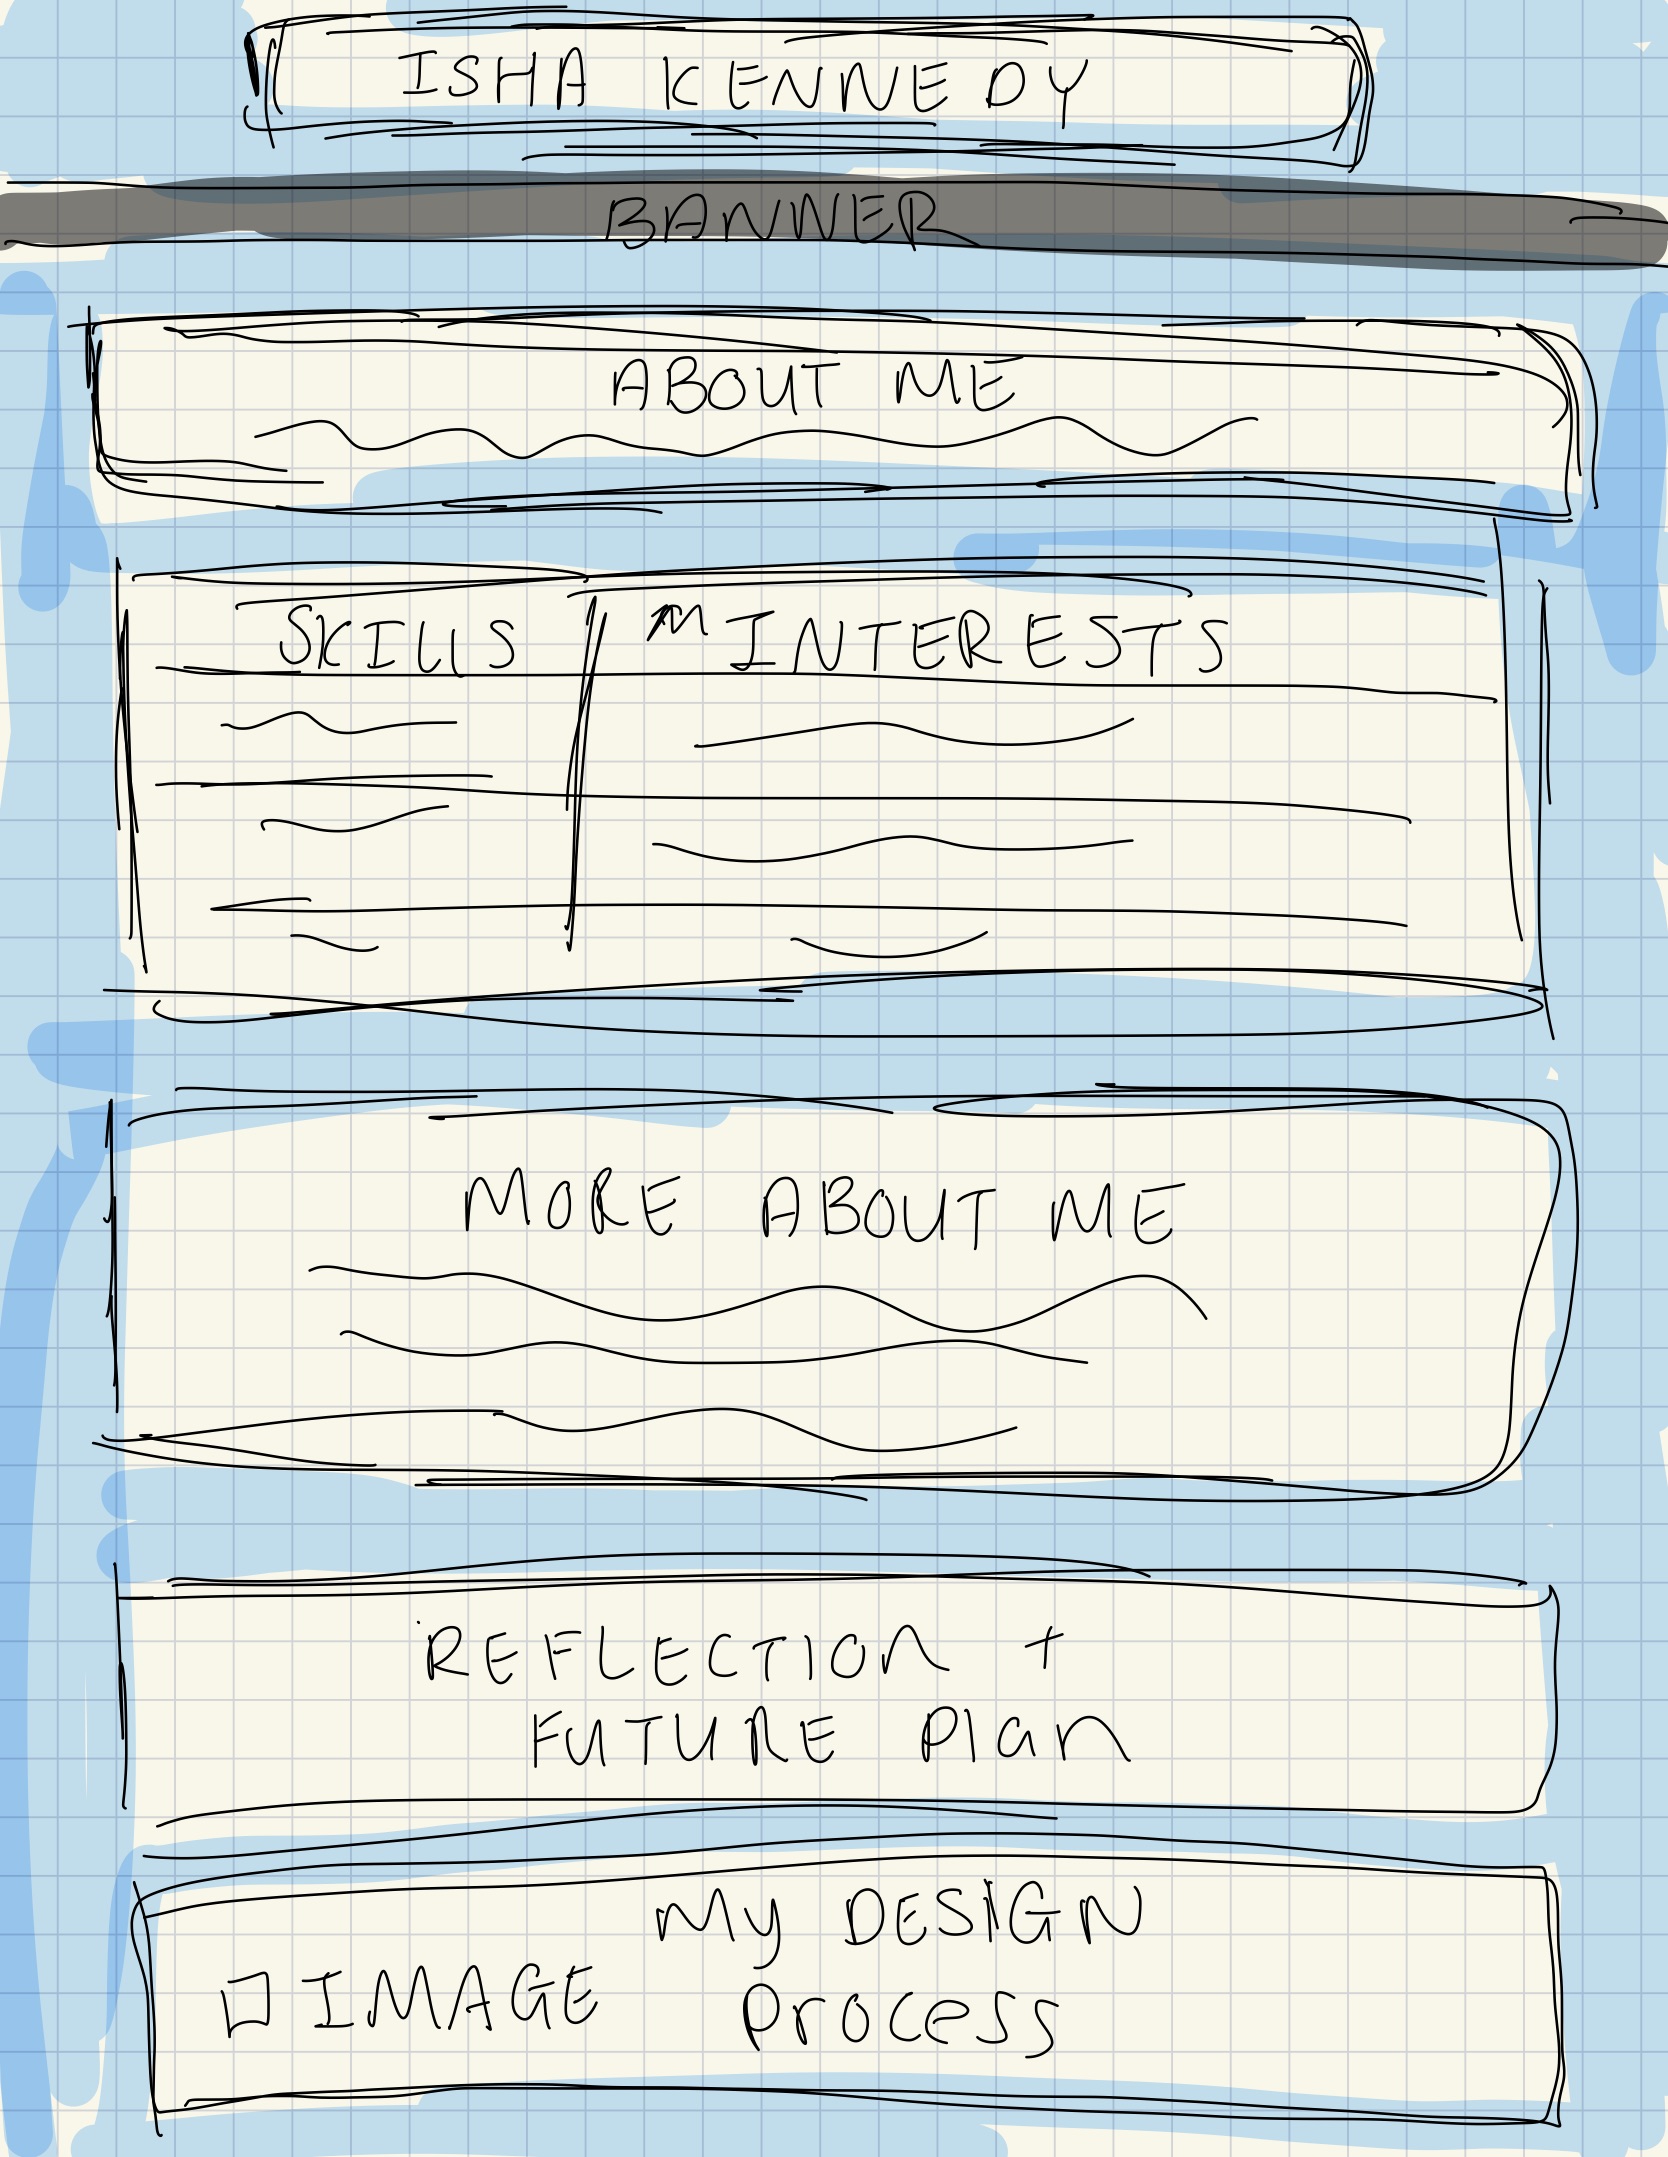 ISHA KENNEDY
BANNER
ABOUT ME
SKILLS INTERESTS
MORE ABOUT ME
REFLECTION +
FUTURE Plan
My DESIGN
IMAGE Process